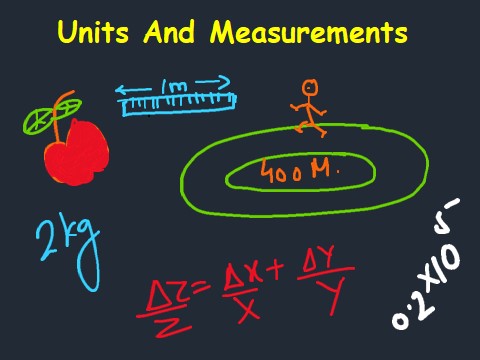 Units And Measurements
1m
400 M.
2kg
ΔZ/Z = ΔX/X + ΔY/Y
0.2×10⁵